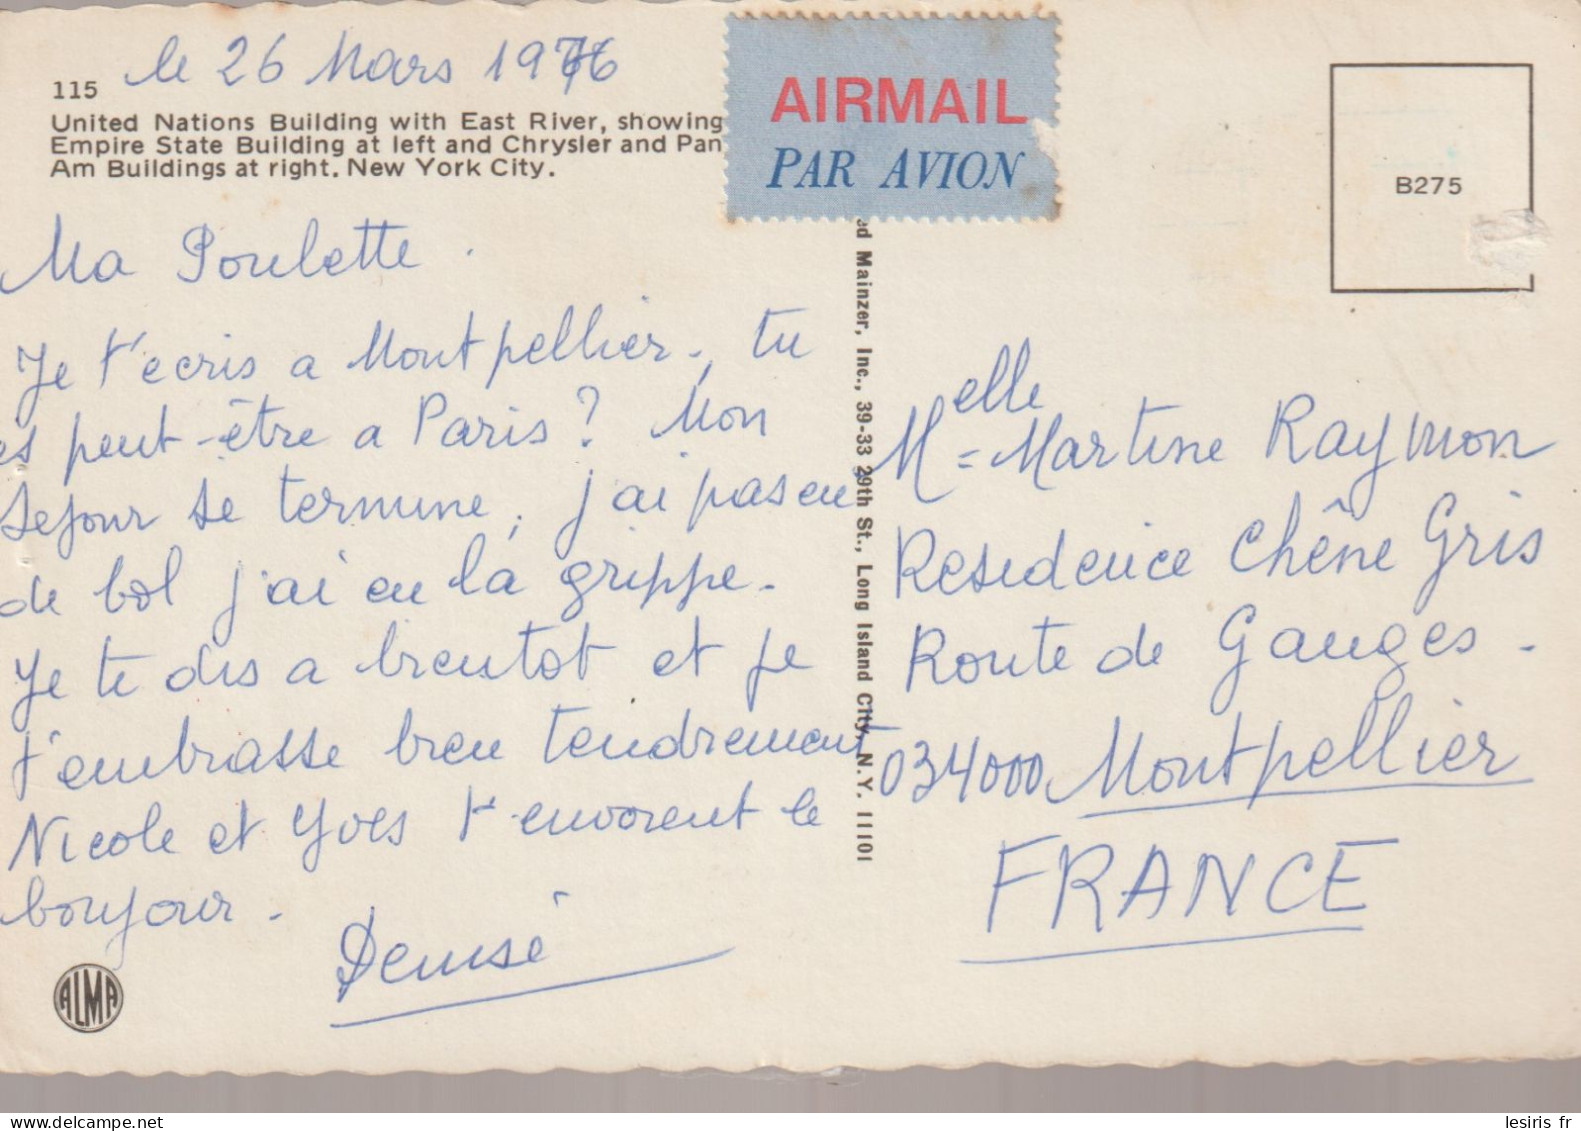 le 26 Mars 1976
115
United Nations Building with East River, showing
Empire State Building at left and Chrysler and Pan
Am Buildings at right. New York City.
AIRMAIL
PAR AVION
B275
Ma Poulette.
Je t'ecris a Montpellier, tu
es peut-être a Paris? Mon
sejour se termine, j'ai pas eu
de bol j'ai eu la grippe.
Je te dis a bientot et je
t'embrasse bien tendrement
Nicole et Yves t'envoient le
bonjour.
Denise
ALMA
ed Mainzer, Inc., 39-33 29th St., Long Island City, N.Y. 11101
Melle Martine Raymon
Residence Chêne Gris
Route de Ganges.
034000 Montpellier
FRANCE
lesiris fr